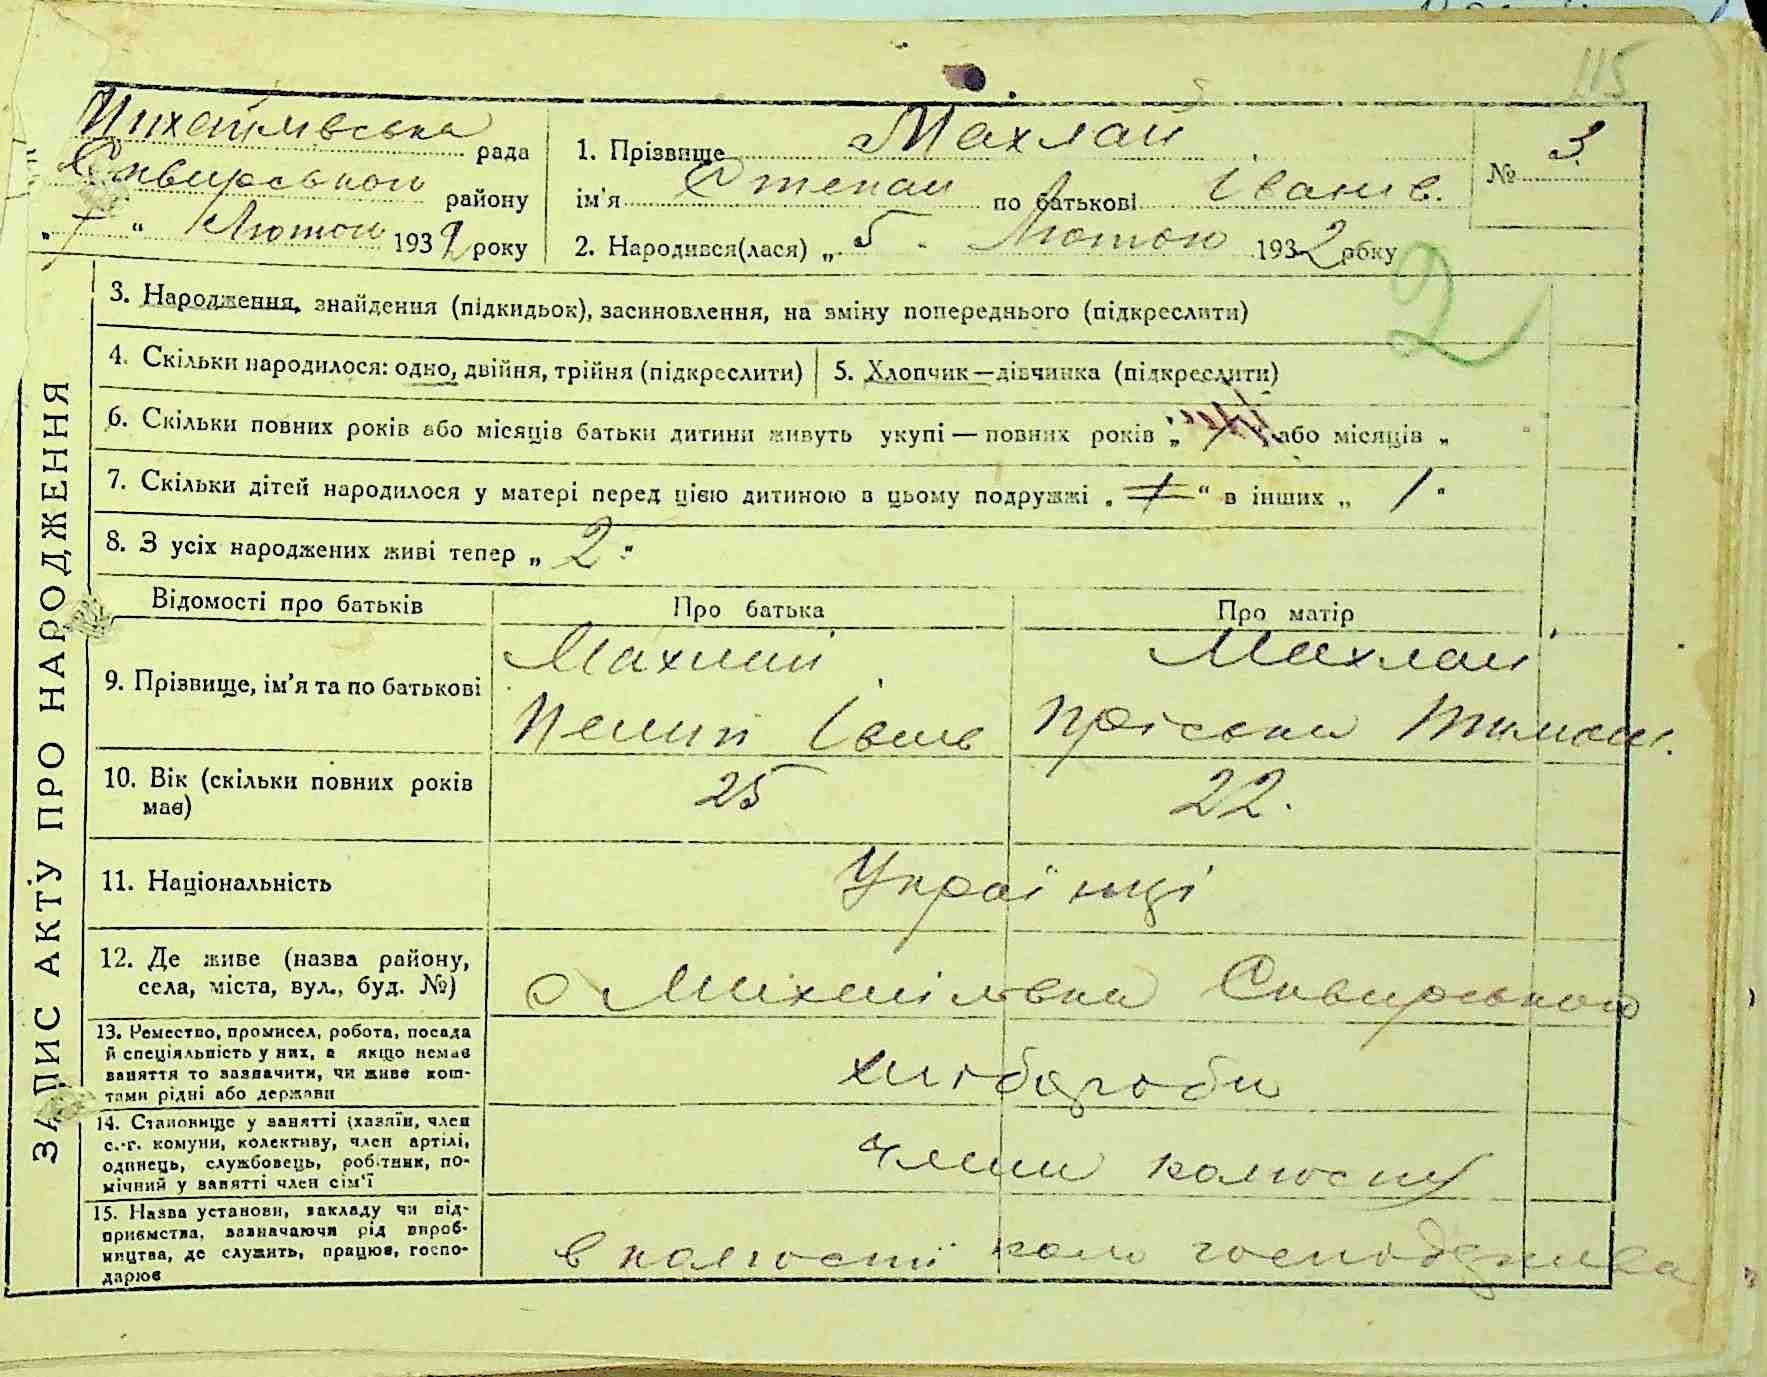 115
Михайлівська рада
Сквирського району
„ 7 “ Лютого 1932 року
1. Прізвище Махлай
ім'я Степан по батькові Іванів.
2. Народився(лася) „ 5 . Лютого 1932 року
№ 3
2
ЗАПИС АКТУ ПРО НАРОДЖЕННЯ
3. Народження, знайдення (підкидьок), засиновлення, на зміну попереднього (підкреслити)
4. Скільки народилося: одно, двійня, трійня (підкреслити)
5. Хлопчик—дівчинка (підкреслити)
6. Скільки повних років або місяців батьки дитини живуть укупі — повних років „ або місяців „
7. Скільки дітей народилося у матері перед цією дитиною в цьому подружжі „ 1 “ в інших „ 1 "
8. З усіх народжених живі тепер „ 2 "
Відомості про батьків Про батька Про матір
9. Прізвище, ім'я та по батькові
Махлай Махлай
Іван Пріська Тимош.
10. Вік (скільки повних років має)
25 22.
11. Національність
Українці
12. Де живе (назва району, села, міста, вул., буд. №)
с Михайлівка Сквирського
13. Ремество, промисел, робота, посада
й спеціяльність у них, а якщо немає
заняття то зазначити, чи живе кош-
тами рідні або держави
хлібороби
14. Становище у занятті (хазяїн, член
с.-г. комуни, колективу, член артілі,
одинець, службовець, робітник, по-
мічний у занятті член сім'ї
члени колгоспу
15. Назва установи, закладу чи під-
приємства, зазначаючи рід вироб-
ництва, де служить, працює, госпо-
дарює
в колгоспі коло господарства